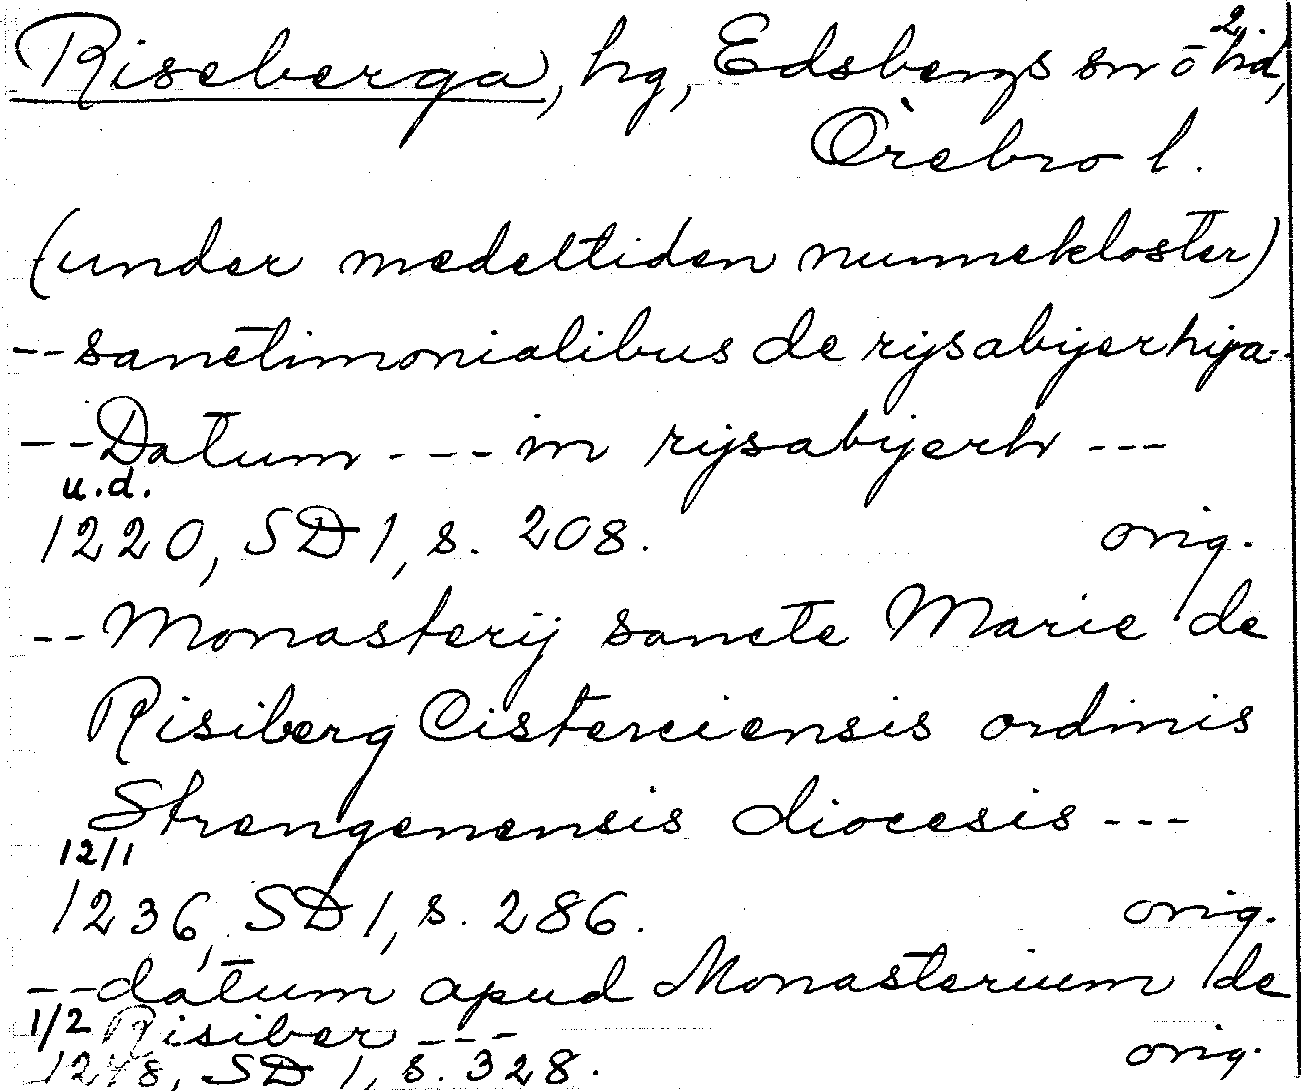 Riseberga, hg, Edsbergs sn ō hd,
2
Örebro l.
(under medeltiden nunnekloster)
-- sanctimonialibus de rijsabijerhija --
-- Datum --- in rijsabijerh ---
u.d.
1220, SD 1, s. 208. orig.
-- Monasterij sancte Marie de
Risiberg Cisterciensis ordinis
Strengenensis diocesis ---
12/1
1236, SD 1, s. 286. orig.
-- datum apud Monasterium de
1/2 Risiber ---
1248, SD 1, s. 328. orig.